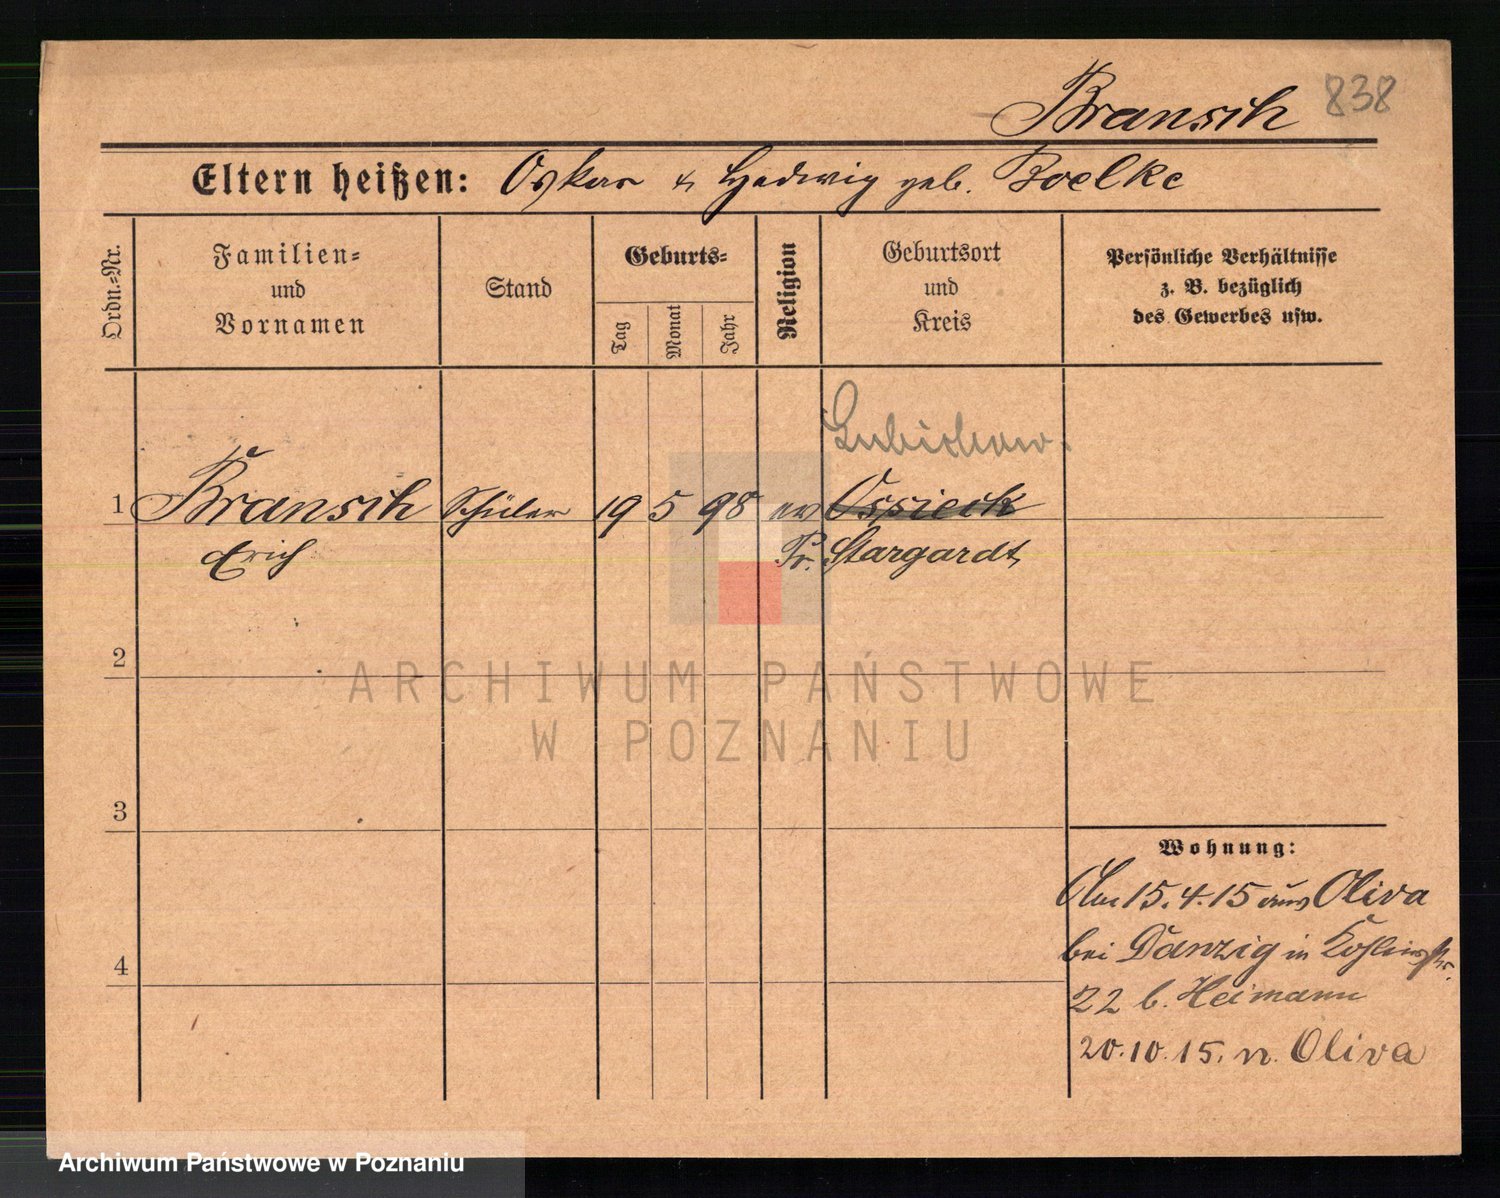 Bransch 838
Eltern heißen: Oskar & Hedwig geb. Boelke
Ordn.=Nr.
Familien=
und
Vornamen
Stand
Geburts=
Tag
Monat
Jahr
Religion
Geburtsort
und
Kreis
Persönliche Verhältnisse
z. B. bezüglich
des Gewerbes usw.
Lubichow.
1 Bransch Schüler 19 5 98 ev Ossieck
Erich Pr. Stargardt
2
3
4
Wohnung:
Am 15.4.15 aus Oliva
bei Danzig in
22 b. Heimann
20.10.15. n. Oliva
ARCHIWUM PAŃSTWOWE
W POZNANIU
Archiwum Państwowe w Poznaniu